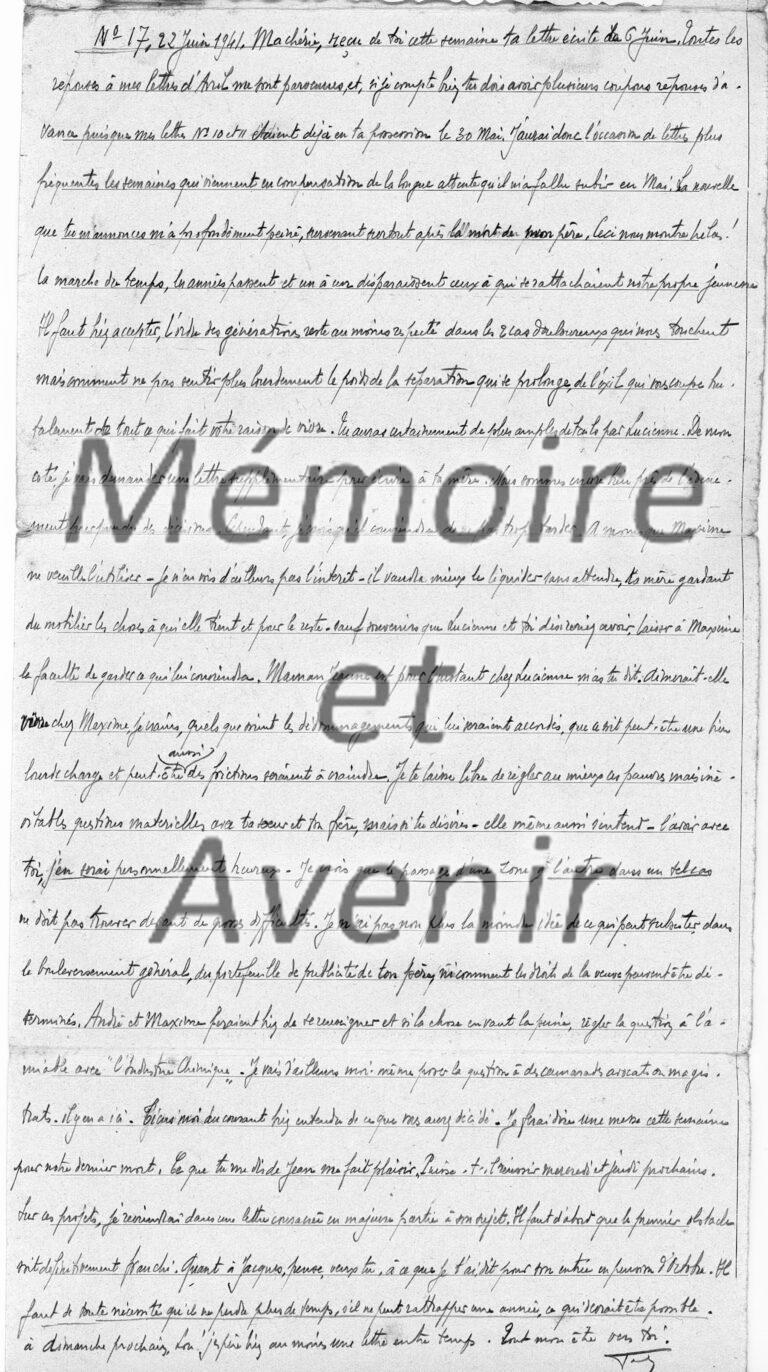 No 17, 22 Juin 1941. Ma chérie, reçu de toi cette semaine ta lettre écrite du 6 Juin. Toutes les
réponses à mes lettres d'Avril me sont parvenues, et, si je compte bien tu dois avoir plusieurs coupons réponses d'a-
vance puisque mes lettres No 10 et 11 étaient déjà en ta possession le 30 Mai. J'aurai donc l'occasion de lettres plus
fréquentes les semaines qui viennent en compensation de la longue attente qu'il m'a fallu subir en Mai. La nouvelle
que tu m'annonces m'a profondément peiné, survenant surtout après la mort de mon père. Ceci nous montre hélas!
la marche du temps, les années passent et un à un disparaissent ceux à qui se rattachaient notre propre jeunesse
Il faut bien accepter, l'ordre des générations reste au moins respecté dans les 2 cas douloureux qui nous touchent
mais comment ne pas sentir plus lourdement le poids de la séparation qui se prolonge, de l'exil qui vous coupe bru-
talement de tout ce qui fait votre raison de vivre. Tu auras certainement de plus amples détails par Lucienne. De mon
côté je vais demander une lettre supplémentaire pour écrire à ta mère. Nous sommes encore bien près de l'évène-
ment pour prendre des décisions. Cependant, je crois qu'il conviendra de ne pas trop tarder. A moins que Maxime
ne veuille l'utiliser - Je n'en vois d'ailleurs pas l'intérêt - il vaudra mieux le liquider sans attendre, ta mère gardant
du mobilier les choses à qui elle tient et pour le reste - sauf souvenirs que Lucienne et toi désireriez avoir, laisser à Maxime
la faculté de garder ce qui lui conviendra. Maman Jeanne est pour l'instant chez Lucienne m'as tu dit. Aimerait-elle
vivre chez Maxime, je crains, quels que soient les dédommagements qui lui seraient accordés, que ce soit peut-être une bien
lourde charge et peut-être aussi des frictions seraient à craindre. Je te laisse libre de régler au mieux ces pauvres mais iné-
vitables questions matérielles avec ta sœur et ton frère, mais si tu désires - elle même aussi s'entend - l'avoir avec
toi, j'en serai personnellement heureux. Je crois que le passage d'une zone à l'autre dans un tel cas
ne doit pas trouver devant de grosses difficultés. Je n'ai pas non plus la moindre idée de ce qui peut subsister, dans
le bouleversement général, du portefeuille de publicité de ton père, ni comment les droits de la veuve peuvent être dé-
terminés. André et Maxime feraient bien de se renseigner et si la chose en vaut la peine, régler la question à l'a-
miable avec "L'Industrie Chimique". Je vais d'ailleurs moi-même poser la question à des camarades avocats ou magis-
trats - il y en a ici. Tiens moi au courant bien entendu de ce que vous aurez décidé. Je ferai dire une messe cette semaine
pour notre dernier mort. Ce que tu me dis de Jean me fait plaisir. Puisse-t-il réussir mercredi et jeudi prochains.
Sur ces projets, je reviendrai dans une lettre consacrée en majeure partie à son sujet. Il faut d'abord que le premier obstacle
soit définitivement franchi. Quant à Jacques, pense, veux tu, à ce que je t'ai dit pour son entrée en pension d'Octobre. Il
faut de toute nécessité qu'il ne perde plus de temps, s'il ne peut rattraper une année, ce qui devrait être possible.
à dimanche prochain, bon! j'espère bien au moins une lettre entre temps. Tout mon être vers toi.
Mémoire
et
Avenir